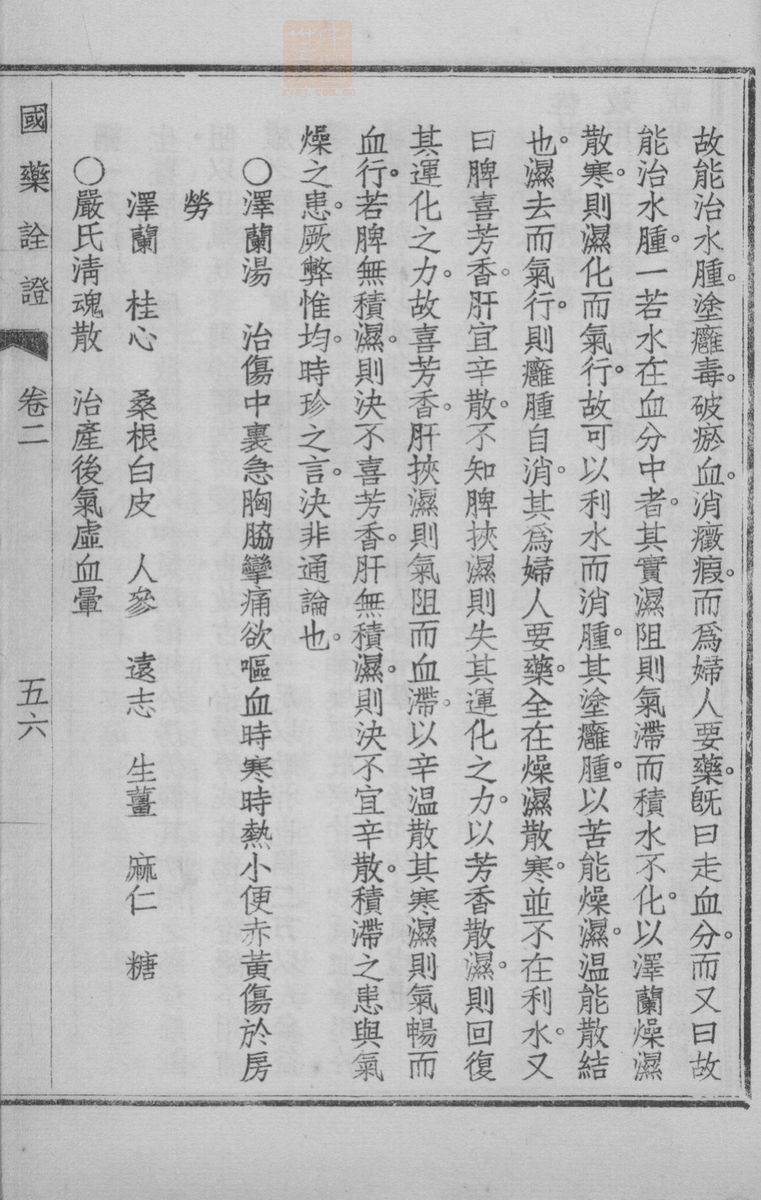 故能治水腫。塗癰毒。破瘀血。消癥瘕。而爲婦人要藥。旣曰走血分。而又曰故
能治水腫。一若水在血分中者。其實濕阻則氣滯而積水不化。以澤蘭燥濕
散寒。則濕化而氣行。故可以利水而消腫。其塗癰腫。以苦能燥濕。温能散結
也。濕去而氣行。則癰腫自消。其爲婦人要藥。全在燥濕散寒。並不在利水。又
曰脾喜芳香。肝宜辛散。不知脾挾濕則失其運化之力。以芳香散濕。則回復
其運化之力。故喜芳香。肝挾濕則氣阻而血滯。以辛温散其寒濕則氣暢而
血行。若脾無積濕。則決不喜芳香。肝無積濕。則決不宜辛散。積滯之患與氣
燥之患。厥弊惟均。時珍之言。決非通論也。
〇澤蘭湯　治傷中裏急胸脇攣痛欲嘔血時寒時熱小便赤黃傷於房
勞
澤蘭　桂心　桑根白皮　人參　遠志　生薑　麻仁　糖
〇嚴氏淸魂散　治產後氣虛血暈
國藥詮證　卷二　五六